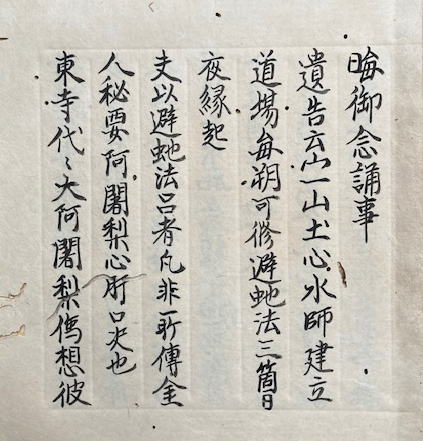 晦御念誦事
遺告云宀一山土心水師建立
道場毎朔可修避虵法三箇日
夜縁起
夫以避虵法呂者凡非所傳金
人秘要阿闍梨心肝口决也
東寺代〻大阿闍梨想彼